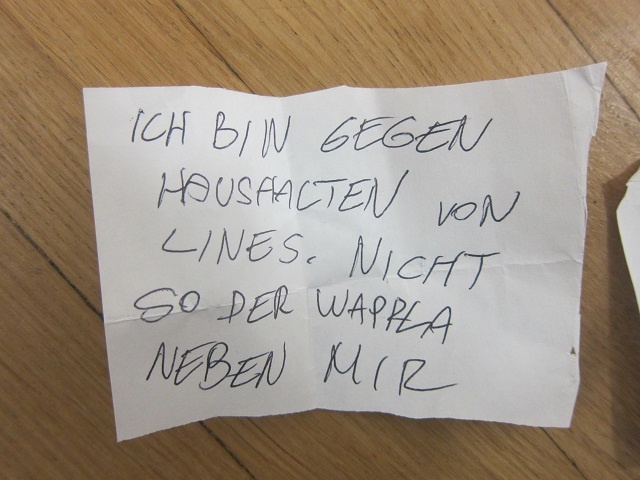 ICH BIN GEGEN
HAUSHALTEN VON
LINES. NICHT
SO DER WAPPLA
NEBEN MIR